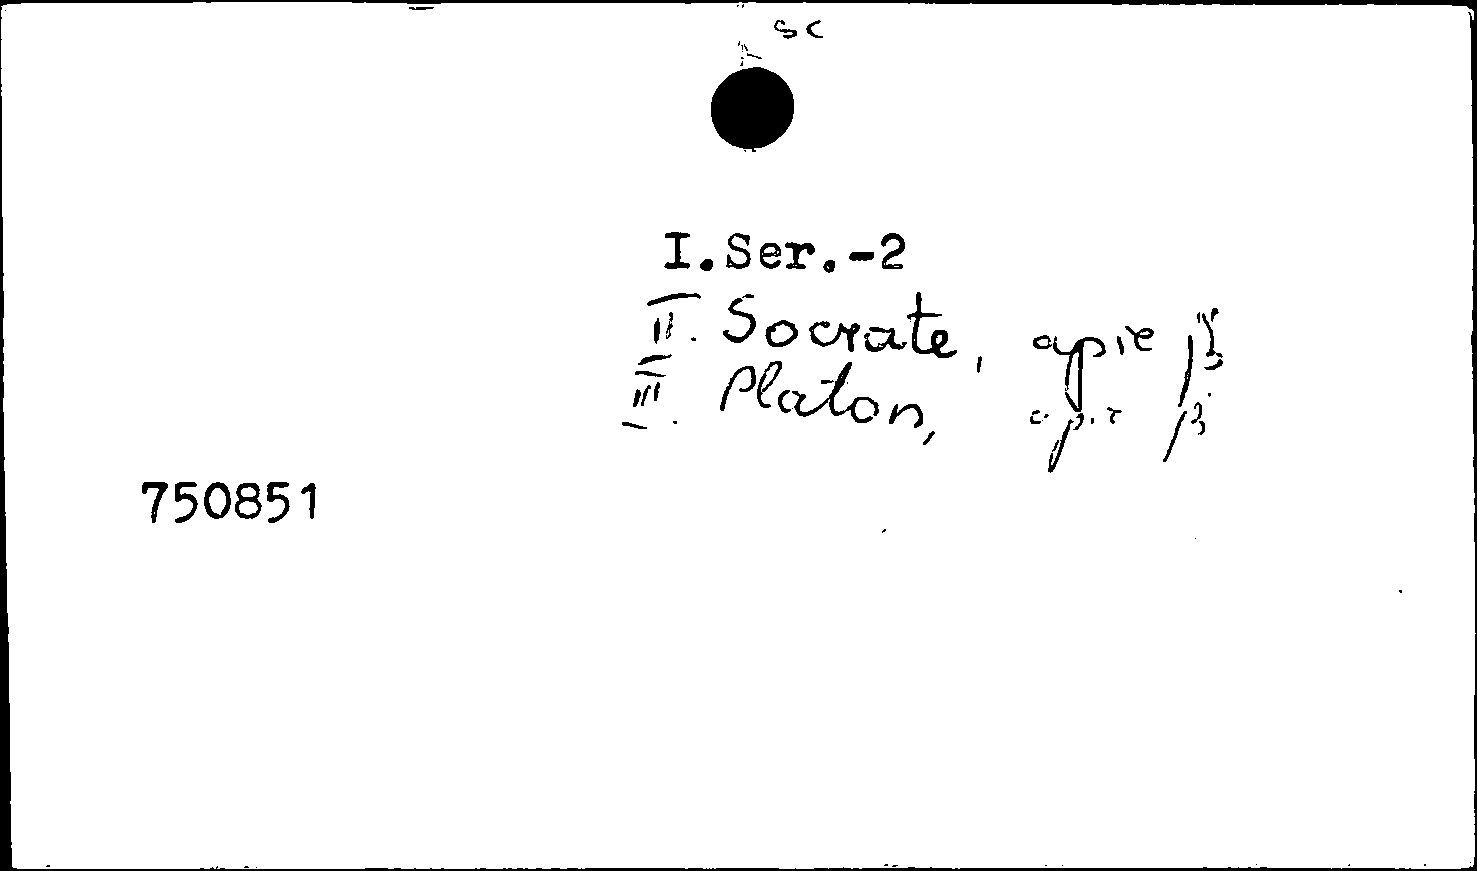 sc
I.Ser.-2
II. Socrate, apie jį
III. Platon, apie jį
750851